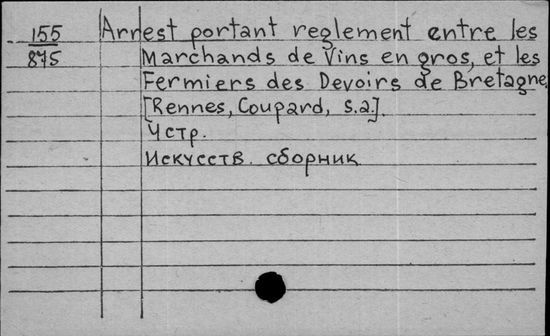 155 Arrest portant reglement entre les
875 Marchands de Vins en gros, et les
Fermiers des Devoirs de Bretagne.
[Rennes, Coupard, s.a.].
4стр.
Искусств. сборник